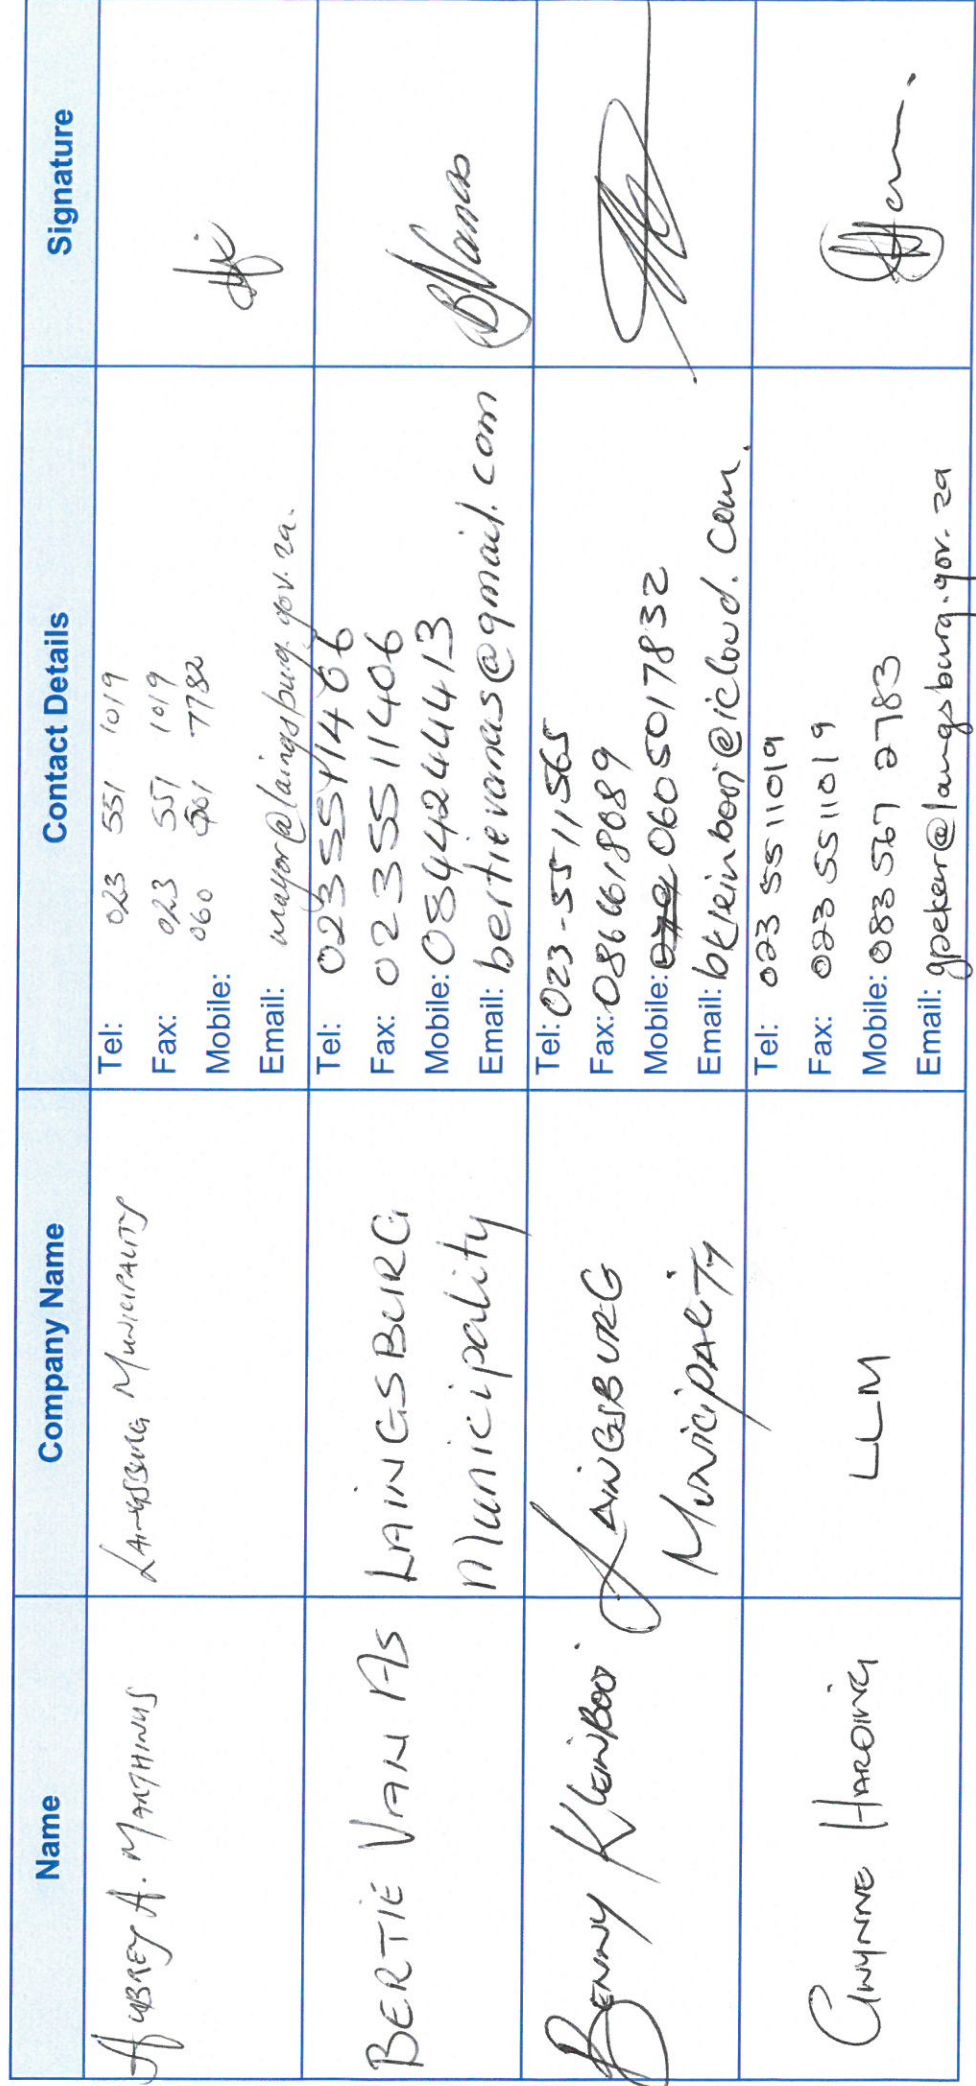 Name Company Name Contact Details Signature
AUBREY A. MARTHINUS
LAINGSBURG MUNICIPALITY
Tel: 023 551 1019
Fax: 023 551 1019
Mobile: 060 7782
Email: mayor@laingsburg.gov.za.
BERTIE VAN AS
LAINGSBURG
Municipality
Tel: 023 5511466
Fax: 023 5511406
Mobile: 0844244413
Email: bertievanas@gmail.com
BENNY KLEINBOOI
LAINGSBURG
MUNICIPALITY
Tel: 023-5511565
Fax: 0866618089
Mobile: 0605017832
Email: bkleinbooi@icloud.com.
GWYNNE HARDING
LLM
Tel: 023 5511019
Fax: 023 5511019
Mobile: 083 567 2783
Email: gpeker@laingsburg.gov.za